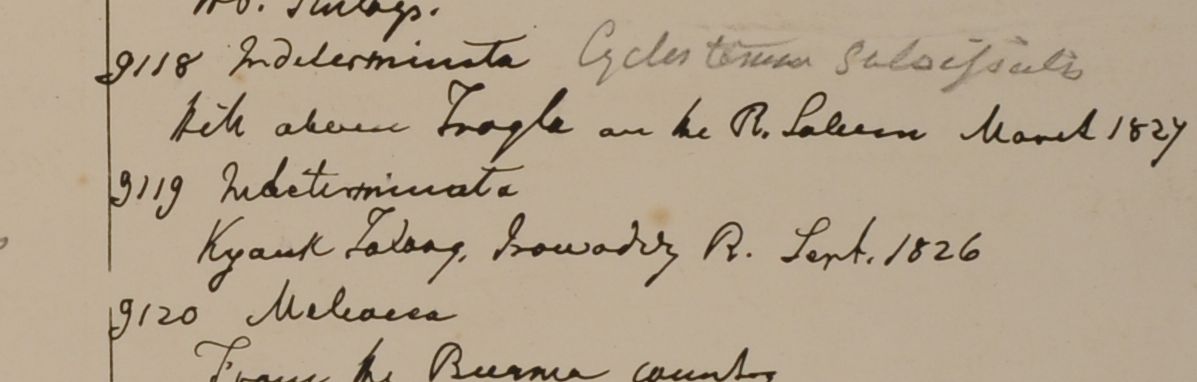 9118 Indeterminata Cyclostemon
Hill above Trogla on the R. Saluen March 1827
9119 Indeterminata
Kyauk Talong, Irowaddy R. Sept. 1826
9120 Melocca
From the Burma country